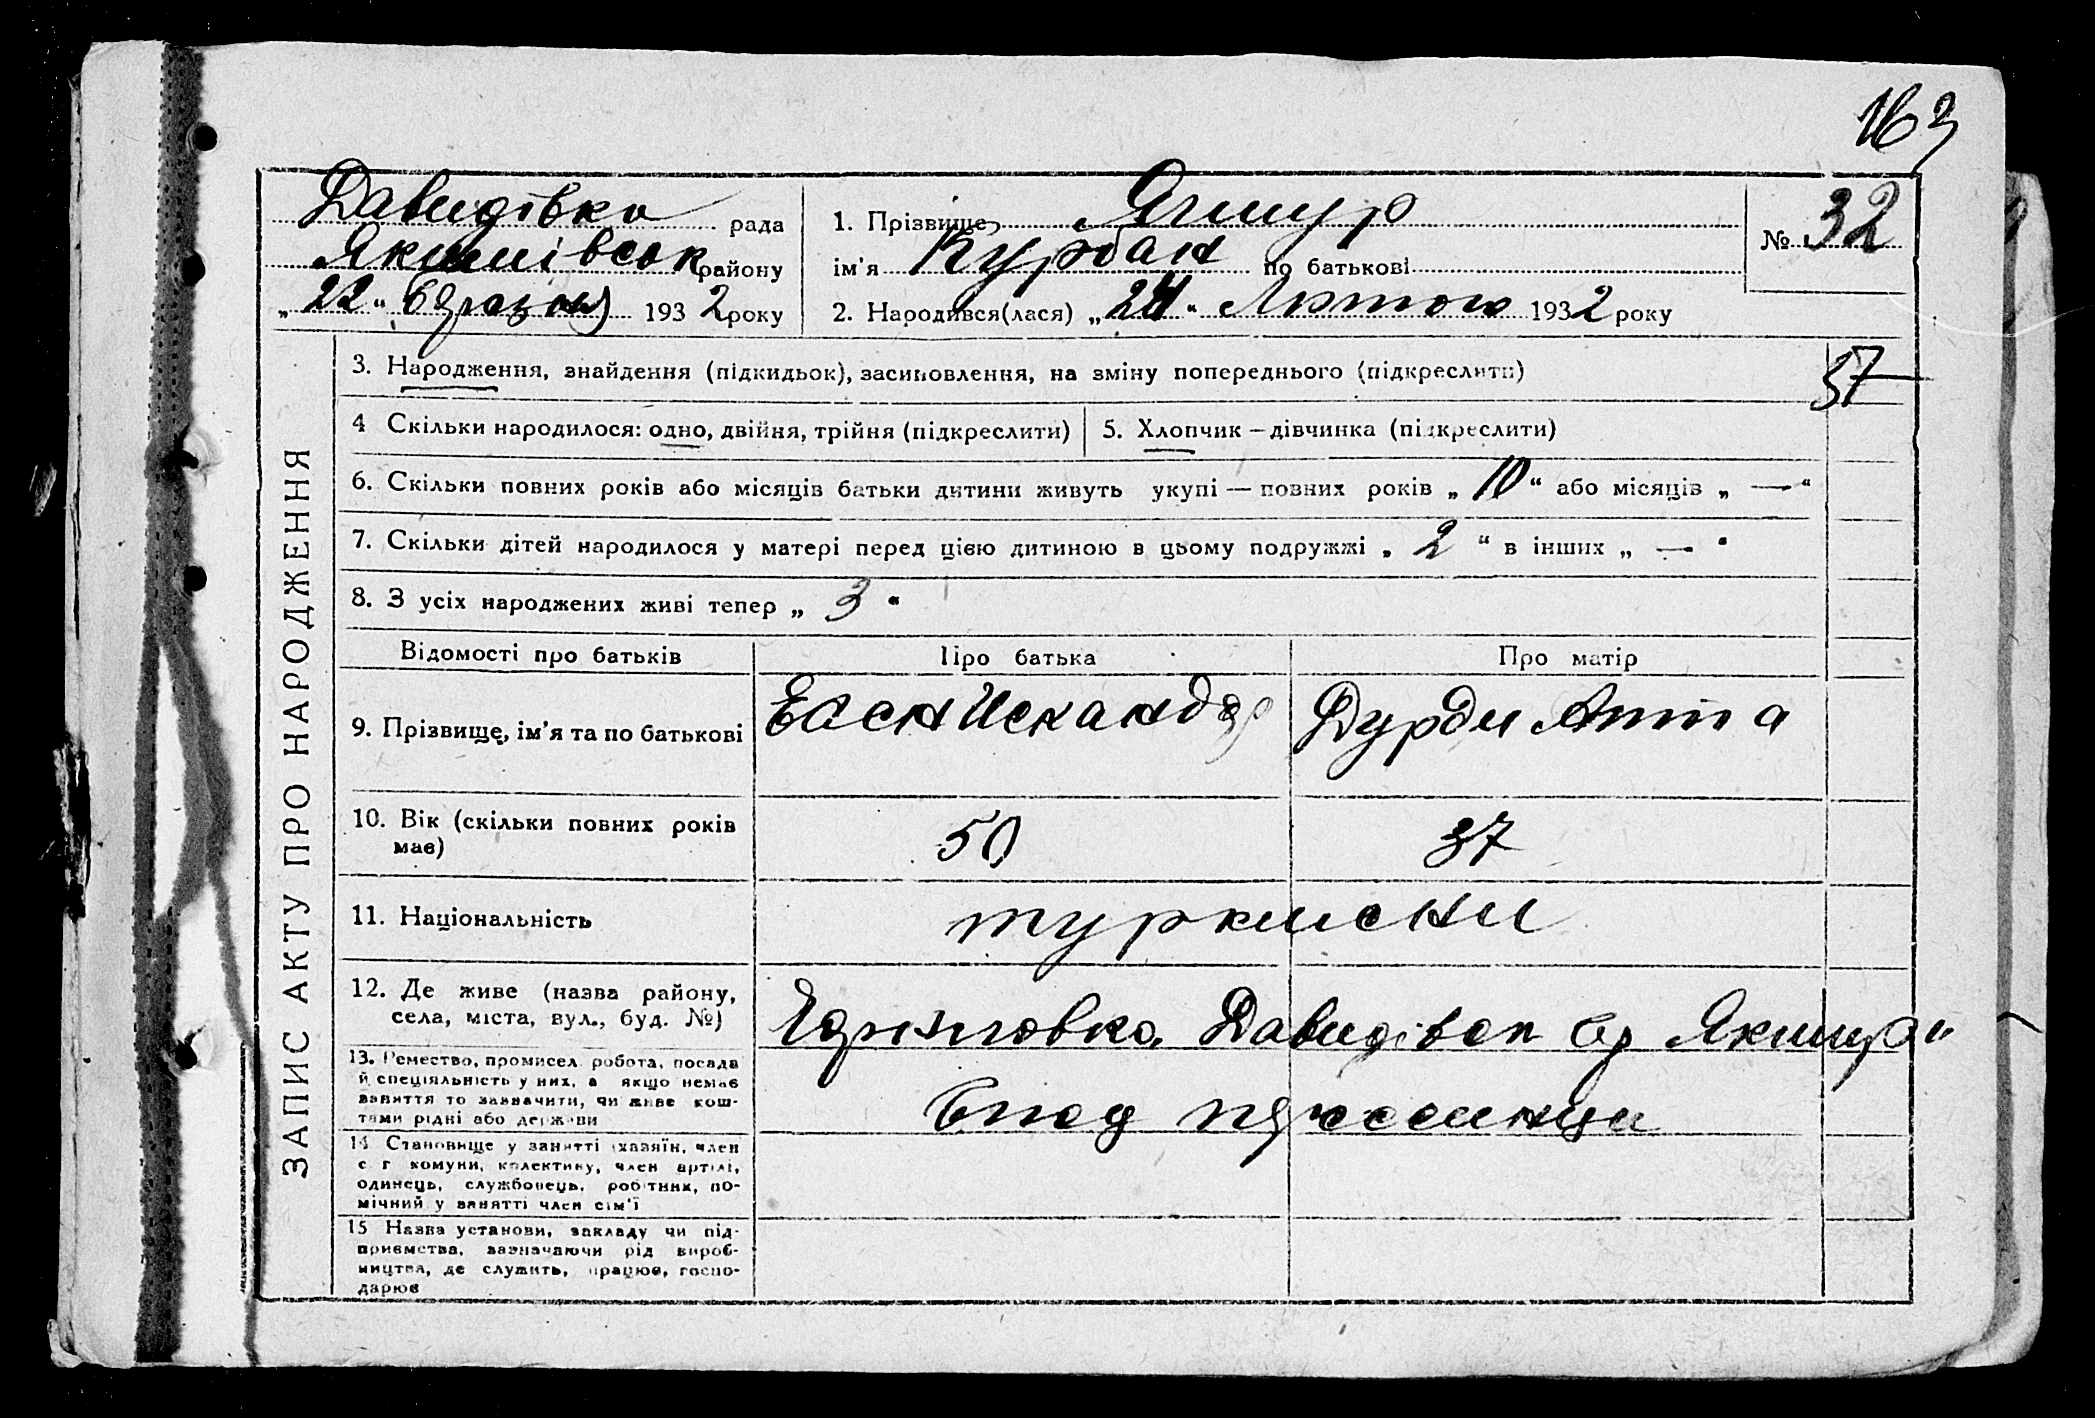 163
Давидівка рада
Якимівськ району
„22" березня 1932 року
1. Прізвище Ягшур
ім'я Курбан по батькові
№ 32
2. Народився(лася) „24" Лютого 1932 року
ЗАПИС АКТУ ПРО НАРОДЖЕННЯ
3. Народження, знайдення (підкидьок), засиновлення, на зміну попереднього (підкреслити)
37
4 Скільки народилося: одно, двійня, трійня (підкреслити)
5. Хлопчик – дівчинка (підкреслити)
6. Скільки повних років або місяців батьки дитини живуть укупі — повних років „10" або місяців „—"
7. Скільки дітей народилося у матері перед цією дитиною в цьому подружжі „2" в інших „—"
8. З усіх народжених живі тепер „3"
Відомості про батьків Про батька Про матір
9. Прізвище, ім'я та по батькові
Дурди Анна
10. Вік (скільки повних років
має)
50 37
11. Національність
туркмени
12. Де живе (назва району,
села, міста, вул., буд. №)
Давидівск
13. Ремество, промисел, робота, посада
й спеціяльність у них, а якщо немає
заняття то зазначити, чи живе кош-
тами рідні або держави
14 Становище у занятті (хазяїн, член
с г комуни, колективу, член артілі,
одинець, службовець, робітник, по-
мічний у занятті член сім'ї
15 Назва установи, закладу чи під-
приємства, зазначаючи рід вироб-
ництва, де служить, працює, госпо-
дарює